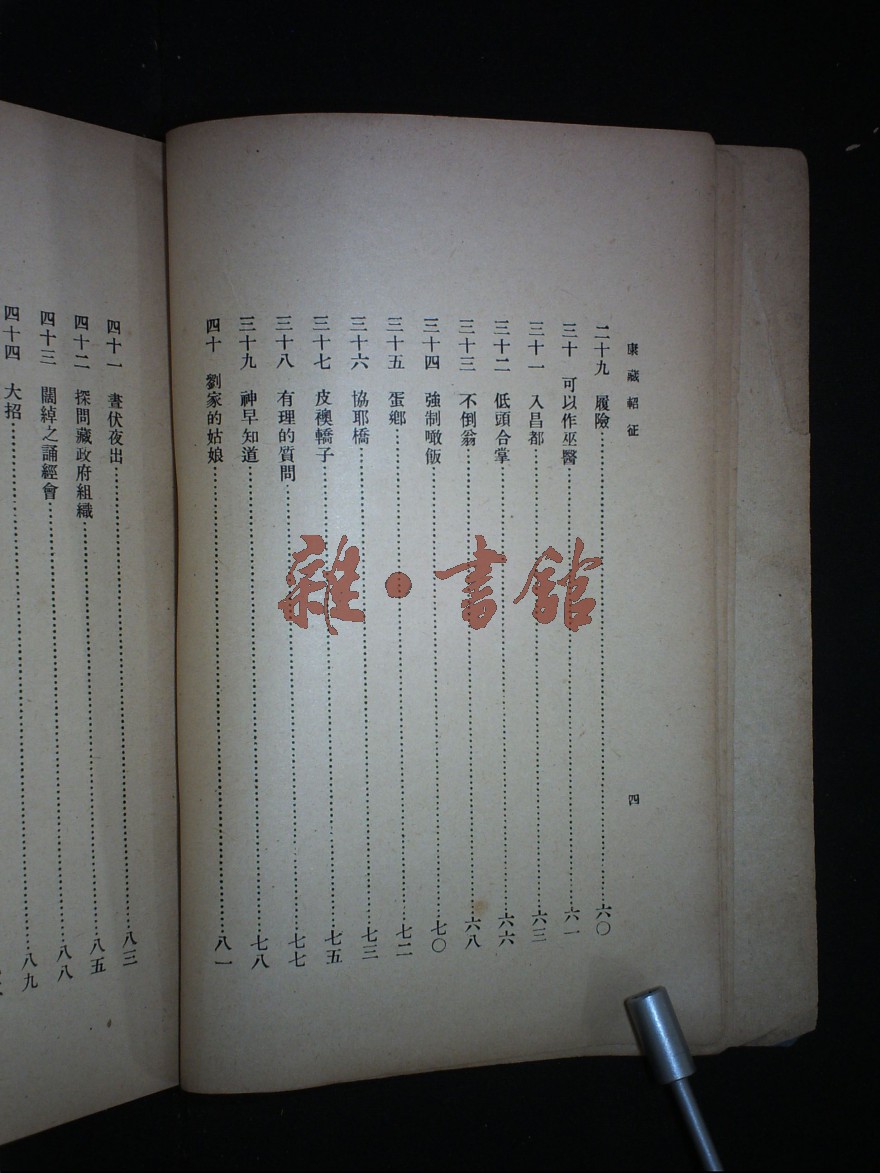 康藏軺征
四
二十九 履險……六〇
三十 可以作巫醫……六一
三十一 入昌都……六三
三十二 低頭合掌……六六
三十三 不倒翁……六八
三十四 強制噉飯……七〇
三十五 蛋鄉……七二
三十六 協耶橋……七三
三十七 皮襖轎子……七五
三十八 有理的質問……七七
三十九 神早知道……七八
四十 劉家的姑娘……八一
四十一 晝伏夜出……八三
四十二 探問藏政府組織……八五
四十三 闊綽之誦經會……八八
四十四 大招……八九
雜·書館